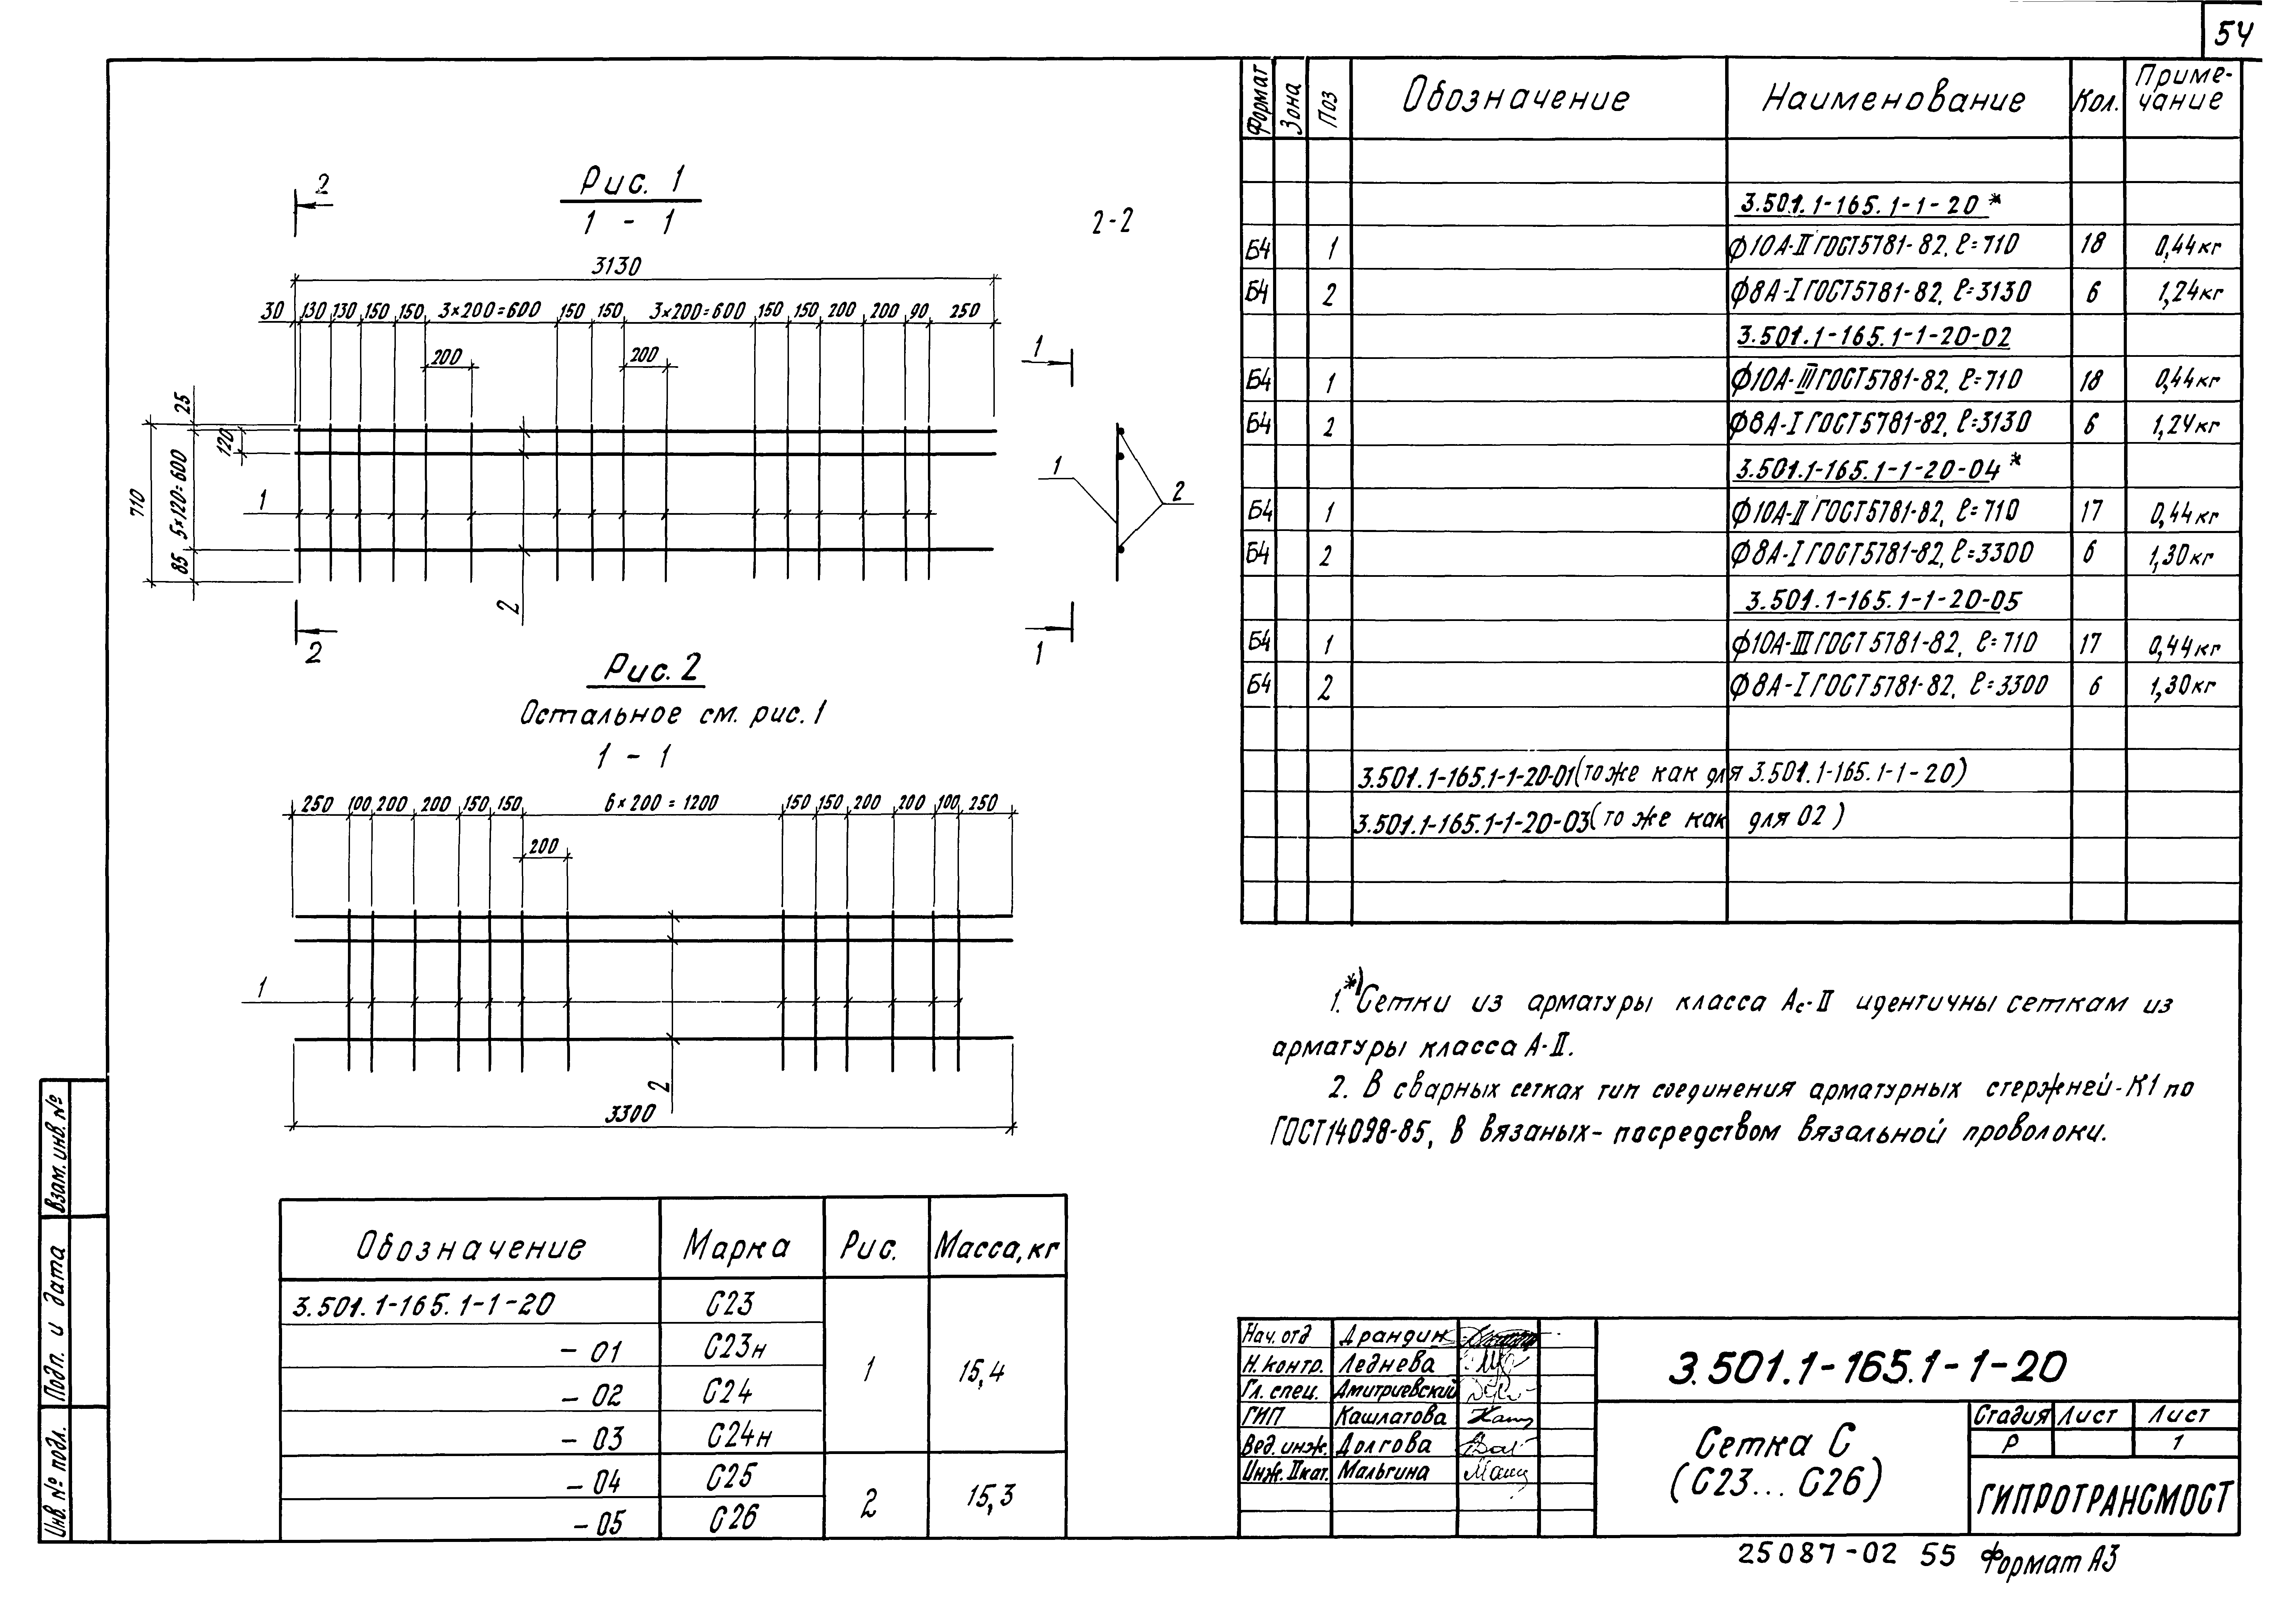 54
Рис. 1
1 - 1
2-2
2
3130
30 130 130 150 150 3×200=600 150 150 3×200=600 150 150 200 200 90 250
200 200
1
25
120
710
5×120=600
85
1
1
2
2
2
1
Рис. 2
Остальное см. рис. 1
1 - 1
250 100 200 200 150 150 6×200=1200 150 150 200 200 100 250
200
1
2
3300
Обозначение Марка Рис. Масса, кг
3.501.1-165.1-1-20 С23 1 15,4
- 01 С23н
- 02 С24
- 03 С24н
- 04 С25 2 15,3
- 05 С26
Формат Зона Поз Обозначение Наименование Кол. Приме-
чание
3.501.1-165.1-1-20*
Б4 1 Ф10А-II ГОСТ5781-82, ℓ=710 18 0,44кг
Б4 2 Ф8А-I ГОСТ5781-82, ℓ=3130 6 1,24кг
3.501.1-165.1-1-20-02
Б4 1 Ф10А-III ГОСТ5781-82, ℓ=710 18 0,44кг
Б4 2 Ф8А-I ГОСТ5781-82, ℓ=3130 6 1,24кг
3.501.1-165.1-1-20-04*
Б4 1 Ф10А-II ГОСТ5781-82, ℓ=710 17 0,44кг
Б4 2 Ф8А-I ГОСТ5781-82, ℓ=3300 6 1,30кг
3.501.1-165.1-1-20-05
Б4 1 Ф10А-III ГОСТ 5781-82, ℓ=710 17 0,44кг
Б4 2 Ф8А-I ГОСТ5781-82, ℓ=3300 6 1,30кг
3.501.1-165.1-1-20-01 (то же как для 3.501.1-165.1-1-20)
3.501.1-165.1-1-20-03 (то же как для 02)
1.*) Сетки из арматуры класса Ас-II идентичны сеткам из
арматуры класса А-II.
2. В сварных сетках тип соединения арматурных стержней-К1 по
ГОСТ14098-85, в вязаных- посредством вязальной проволоки.
Взам. инв. №
Подп. и дата
Инв. № подл.
Нач. отд Драндин
Н. контр. Леднева
Гл. спец. Дмитриевский
ГИП Кашлатова
Вед. инж. Долгова
Инж. II кат. Мальгина
3.501.1-165.1-1-20
Сетка С
(С23... С26)
Стадия Лист Лист
Р 1
ГИПРОТРАНСМОСТ
25087-02 55 Формат А3